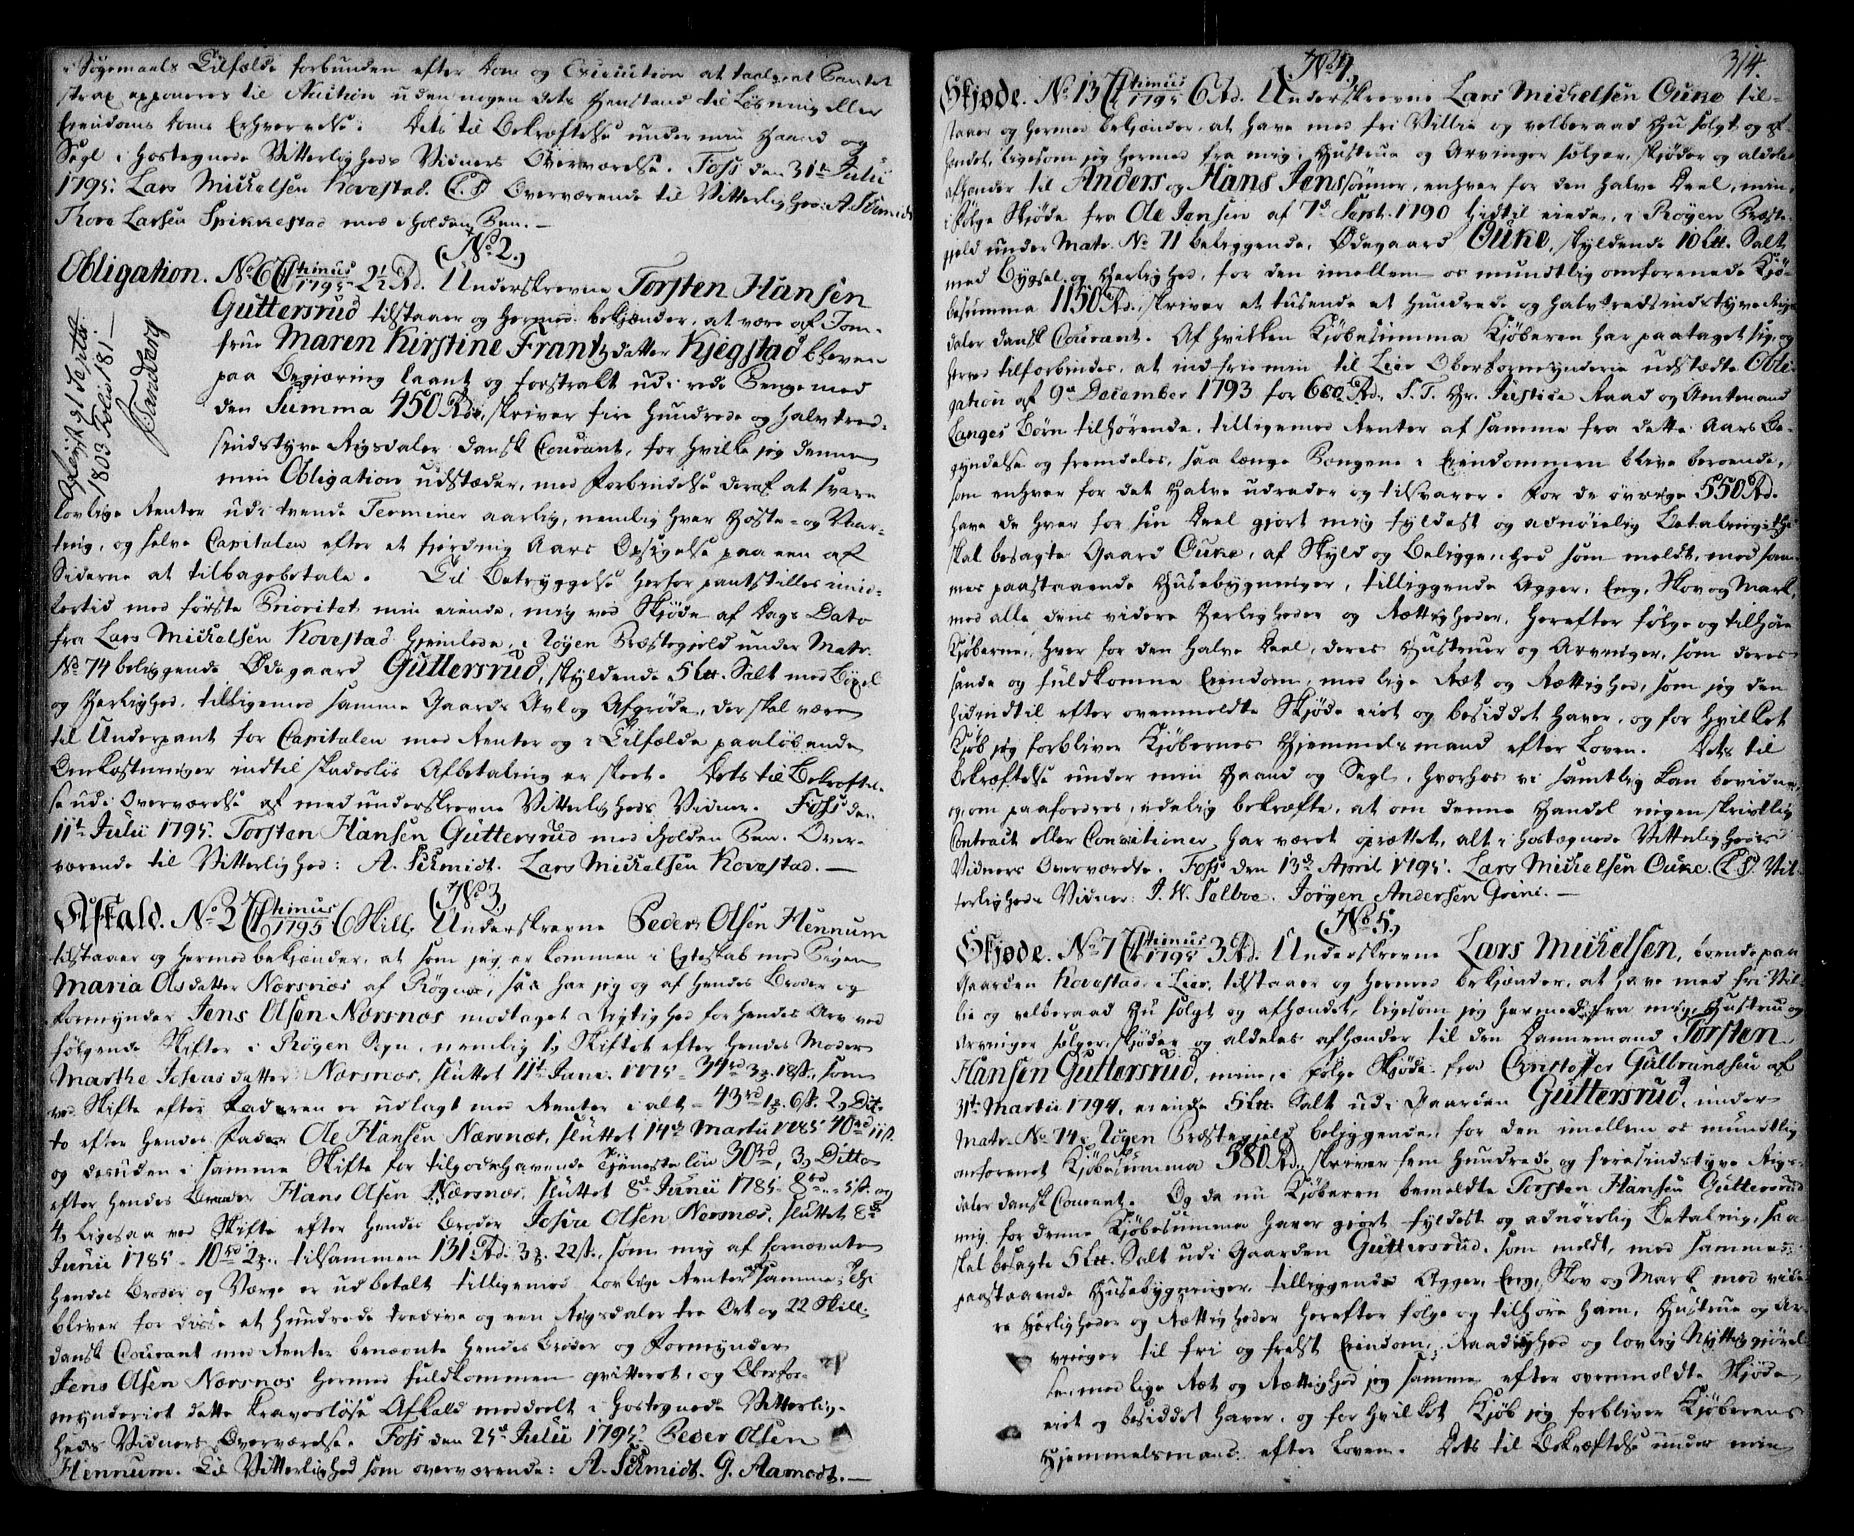 Søgemaals Tilfælde forbunden efter Dom og Execution at taale, at Pantet
strax opponeres til Auction uden nogen dets Henstand til Løsning eller
Eiendoms Doms Erhvervelse. Dets til Bekræftelse under min Haand og
Segl i hostegnede Vitterligheds Vidners Overværelse. Foss den 31te Julii
1795. Lars Michelsen Kovestad. (L.S.) Overværende til Vitterlighed: A. Schmidt
Thore Larsen Spikkestad med iholden Pen. —
(No 2.)
Obligation. No 6 Ctimus 1795 2½ Rd. Underskrevne Torsten Hansen
Guttersrud tilstaaer og hermed bekjender, at være af Jom-
frue Maren Kirstine Frantzdatter Kjegstad bleven
paa Begjæring laant og forstrakt udi rede Penge med
den Summa 450 Rdr, skriver fire Hundrede og halvtred-
sindstyve Rigsdaler dansk Courant, for hvilke jeg denne
min Obligation udstæder, med Forbindelse deraf at svare
Afløst og i Septbr
1803 Folio 181 —
J. Sandberg
lovlige Renter udi tvende Terminer aarlig, nemlig hver Høste- og Vaar-
ting, og selve Capitalen efter et fierding Aars Opsigelse paa een af
Siderne at tilbagebetale. Til Betryggelse herfor pantstilles imid-
lertid med første Prioritet min eiende, mig ved Skjøde af Dags Dato
fra Lars Michelsen Kovestad hjemlede, i Røyen Præstegjeld under Matr.
No 74 beliggende Ødegaard Guttersrud, skyldende 5 Ltt. Salt med Bøxel
og Herlighed, tilligemed samme Gaards Avl og Afgrøde, der skal være
til Underpant for Capitalen med Renter og i Tilfælde paaløbende
Omkostninger indtil skadesløs Afbetaling er skeet. Dets til Bekræftel-
se udi Overværelse af medunderskrevne Vitterligheds Vidner. Foss den
11te Julii 1795. Torsten Hansen Guttersrud med iholden Pen. Over-
værende til Vitterlighed: A. Schmidt. Lars Michelsen Kovestad. —
(No 3.)
Afkald. No 3 Ctimus 1795 6 Skill. Underskrevne Peder Olsen Hennum
tilstaaer og hermed bekjender, at som jeg er kommen i Egteskab med Pigen
Maria Olsdatter Nærsnæs af Røgnæ, saa har jeg og af hendes Broder og
Formynder Jens Olsen Nærsnæs modtaget Rigtighed for hendes Arv ved
følgende Skifter i Røyen Sogn, nemlig 1, Skiftet efter hendes Moder
Marthe Johnsdatter Nærsnæs, sluttet 11te Junii 1775 - 34 rd 3 ₰ 18 s, som
ved Skifte efter Faderen er udlagt med Renter i alt - 43 rd 1 ₰ 6 s. 2, Dit-
to efter hendes Fader Ole Hansen Nærsnæs, sluttet 14de Martii 1785 40 rd 11 s.
og desuden i samme Skifte for tilgodehavende Tjenesteløn 30 rd, 3, Ditto
efter hendes Broder Hans Olsen Nærsnæs, sluttet 8de Junii 1785 - 8 rd - 5 s. og
4, ligesaa ved Skifte efter hendes Broder Johan Olsen Nærsnæs, sluttet 8de
Junii 1785 - 10 rd 2 ₰. tilsammen 131 Rd. 3 ₰. 22 s., som mig af fornævnte
hendes Broder og Værge er udbetalt tilligemed lovlige Renter af samme; Thi
bliver for disse et Hundrede tredive og een Rigsdaler tre Ort og 22 Skill.
dansk Courant med Renter benævnte hendes Broder og Formynder
Jens Olsen Nærsnæs hermed fuldkommen qvitteret, og Overfor-
mynderiet dette Kravesløse Afkald meddeelt i hostegnede Vitterlig-
heds Vidners Overværelse. Foss den 25de Julii 1795. Peder Olsen
Hennum. Til Vitterlighed som overværende: A. Schmidt. G. Aamodt. —
314.
(No 4.)
Skjøde. No 13 Ctimus 1795 6 Rd. Underskrevne Lars Michelsen Ouke til-
staaer og hermed bekjender, at have med fri Villie og velberaad Hu solgt og af-
hændet, ligesom jeg hermed fra mig, Hustrue og Arvinger sælger, skjøder og aldeles
afhænder til Anders og Hans Jenssønner, enhver for den halve Deel, min,
ifølge Skjøde fra Ole Jensen af 7d Sept. 1790 hidtil eiende, i Røyen Præste-
gjeld under Matr. No 71 beliggende, Ødegaard Ouke, skyldende 10 Ltt. Salt
med Bygsel og Herlighed, for den imellem os mundtlig omforenede Kjø-
besumma 1150 Rd. skriver et tusende et Hundrede og halvtredsindstyve Rigs-
daler dansk Courant. Af hvilken Kjøbesumma Kjøberen har paataget sig, og
herved tilforbindes, at indfrie min til Lier Oberformynderie udstædte Obli-
gation af 9de December 1793 for 600 Rd, S. T. Hr. Justice Raad og Amtmand
Langes Børn tilhørende, tilligemed Renter af samme fra dette Aars Be-
gyndelse og fremdeles, saa længe Pengene i Eiendommen blive beroende,
som enhver for det Halve udreder og tilsvarer. For de øvrige 550 Rd.
have de hver for sin Deel gjort mig fyldest og adnøielig Betaling; thi
skal besagte Gaard Ouke, af Skyld og Beliggenhed som meldt, med sam-
mes paastaaende Husebygninger, tilliggende Agger, Eng, Skov og Mark,
med alle dens videre Herligheder og Rettigheder, herefter følge og tilhøre
Kjøberne, hver for den halve Deel, deres Hustruer og Arvinger, som deres
sande og fuldkomne Eiendom, med lige Ræt og Rættighed, som jeg den
hidindtil efter ovenmeldte Skjøde eiet og besiddet haver, og for hvilket
Kjøb jeg forbliver Kjøbernes Hjemmelsmand efter Loven. Dets til
Bekræftelse under min Haand og Segl, hvorhos vi samtlig kan bevidne,
og, om paafordres, edelig bekræfte, at om denne Handel ingen skriftlig
Contract eller Conditioner har været oprettet, alt i hostegnede Vitterligheds
Vidners Overværelse. Foss den 13de April 1795. Lars Michelsen Ouke. (L.S.) Vit-
terligheds Vidner: J. W. Selboe. Jørgen Andersen Greine. —
(No 5.)
Skjøde. No 7 Ctimus 1795 3 Rd. Underskrevne Lars Michelsen, boende paa
Gaarden Kovestad i Lier, tilstaaer og hermed bekjender, at have med fri Vil-
lie og velberaad Hu solgt og afhændet, ligesom jeg hermed fra mig, Hustrue og
Arvinger sælger, skjøder og aldeles afhænder til den Dannemand Torsten
Hansen Guttersrud, min, i følge Skjøde fra Christoffer Gulbrandsen af
31te Martii 1794, eiende 5 Ltt. Salt udi Gaarden Guttersrud, under
Matr. No 74 i Røyen Præstegjeld beliggende, for den imellem os mundtlig
omforenet Kjøbesumma 580 Rd, skriver fem Hundrede og firesindstyve Rigs-
daler dansk Courant. Og da nu Kjøberen bemeldte Torsten Hansen Guttersrud
mig for denne Kjøbesumma haver gjort fyldest og adnøielig Betaling, saa
skal besagte 5 Ltt. Salt udi Gaarden Guttersrud, som meldt, med sammes
paastaaende Husebygninger, tilliggende Agger, Eng, Skov og Mark med vide-
re Herligheder og Rettigheder herefter følge og tilhøre ham, Hustrue og Ar-
vinger til fri og frelst Eiendom, Raadighed og lovlig Nyttiggjørel-
se, med lige Ræt og Rættighed jeg samme efter ovenmeldte Skjøde
eiet og besiddet haver, og for hvilket Kjøb jeg forbliver Kjøberens
Hjemmelsmand efter Loven. Dets til Bekræftelse under min